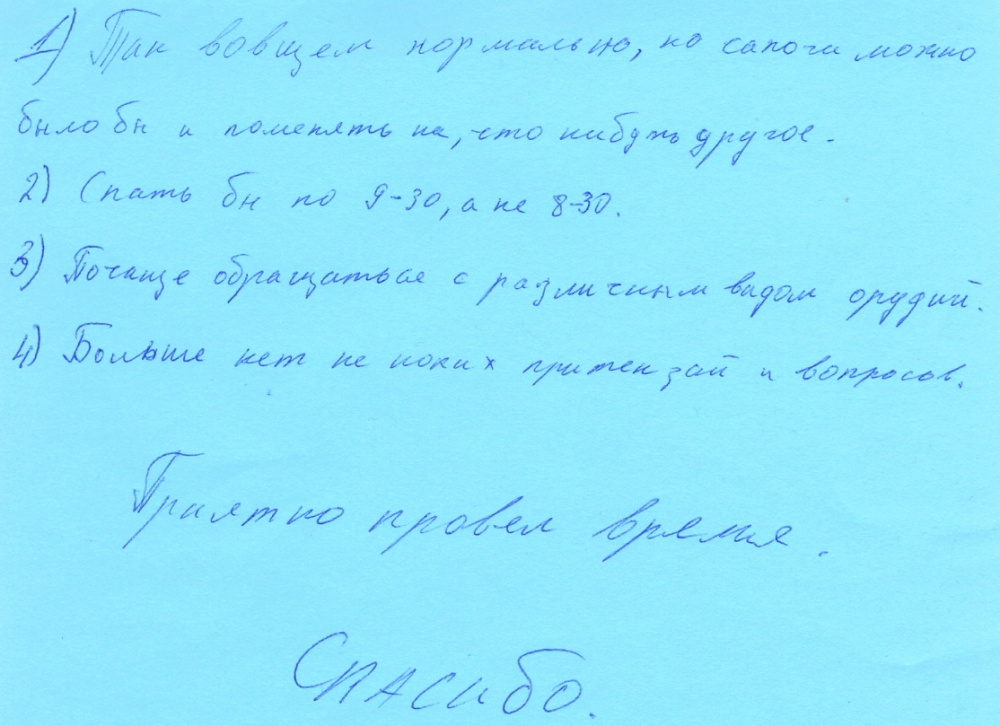 1) Так вовщем нормально, но сапоги можно
было бы и поменять на, что нибудь другое.
2) Спать бы по 9-30, а не 8-30.
3) Почаще обращаться с различным видом орудий.
4) Больше нет не каких притензай и вопросов.
Приятно провел время.
Спасибо.